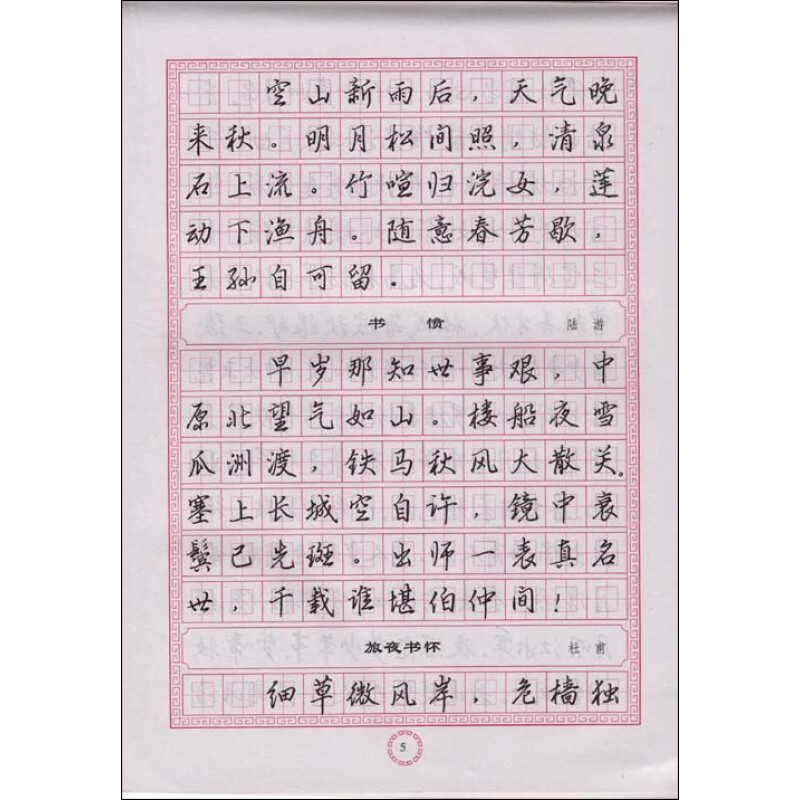 空山新雨后，天气晚
来秋。明月松间照，清泉
石上流。竹喧归浣女，莲
动下渔舟。随意春芳歇，
王孙自可留。
书 愤 陆 游
早岁那知世事艰，中
原北望气如山。楼船夜雪
瓜洲渡，铁马秋风大散关。
塞上长城空自许，镜中衰
鬓已先斑。出师一表真名
世，千载谁堪伯仲间！
旅夜书怀 杜 甫
细草微风岸，危樯独
5